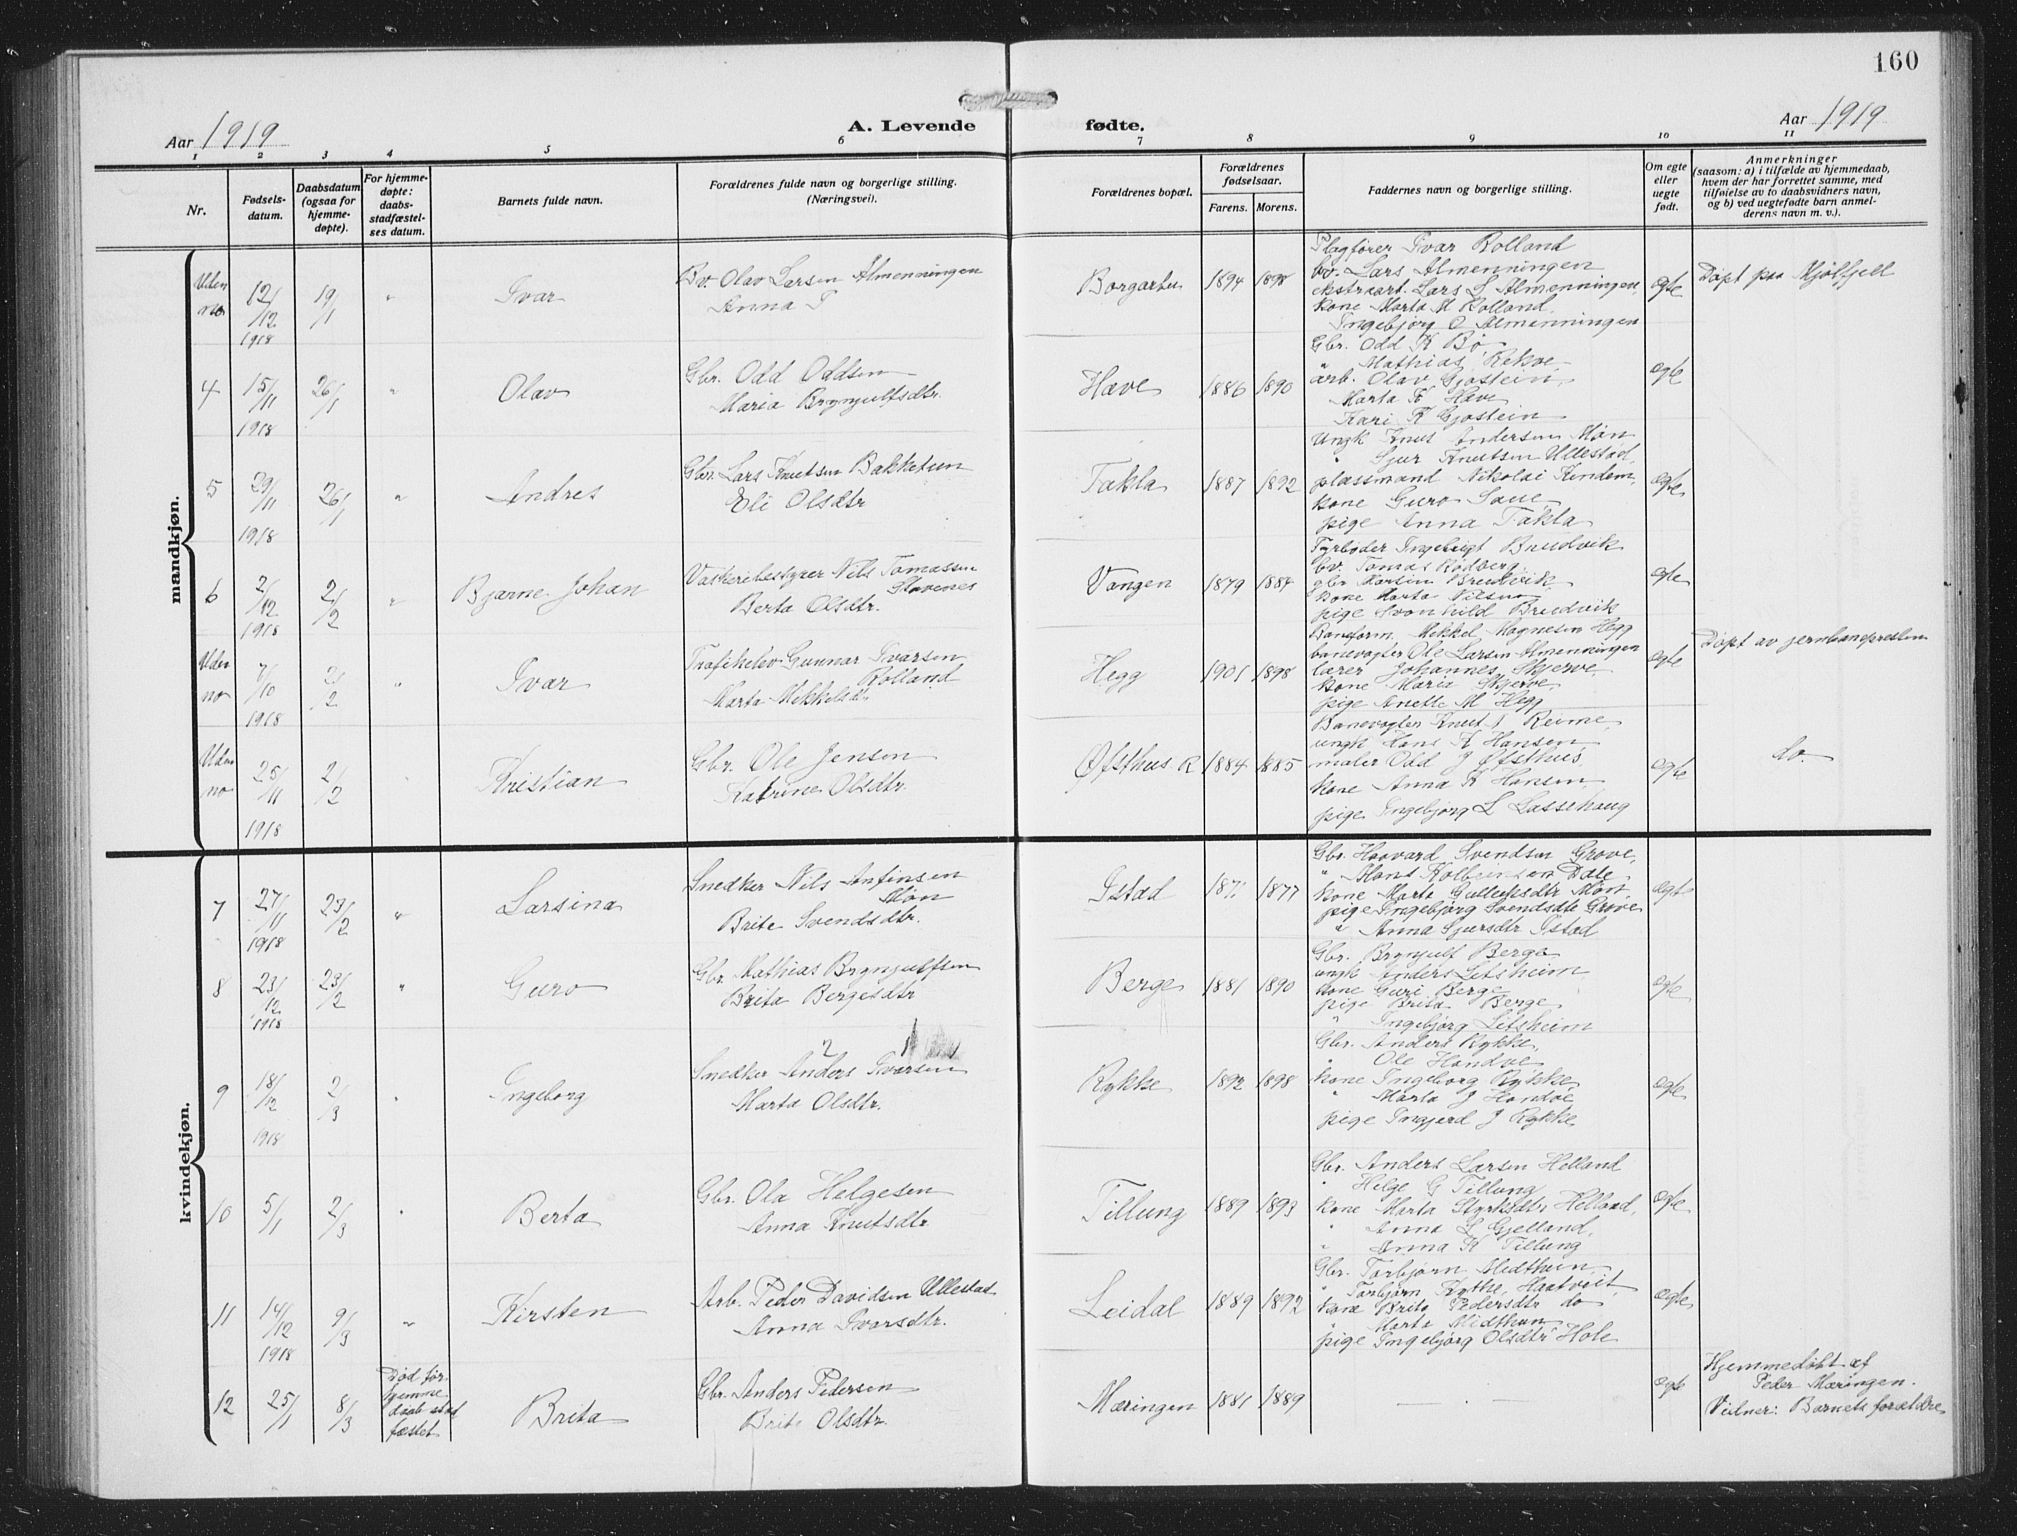 160
Aar 1919
A. Levende fødte.
Aar 1919
1 2 3 4 5 6 7 8 9 10 11
Nr.
Fødsels-
datum.
Daabsdatum
(ogsaa for
hjemme-
døpte).
For hjemme-
døpte:
daabs-
stadfæstel-
ses datum.
Barnets fulde navn.
Forældrenes fulde navn og borgerlige stilling.
(Næringsvei).
Forældrenes bopæl.
Forældrenes
fødselsaar.
Farens. Morens.
Faddernes navn og borgerlige stilling.
Om egte
eller
uegte
født.
Anmerkninger
(saasom: a) i tilfælde av hjemmedaab,
hvem der har forrettet samme, med
tilføielse av to daabsvidners navn,
og b) ved uegtefødte barn anmel-
derens navn m. v.).
mandkjøn.
Uden
no
12/12
1918
19/1
"
Ivar
Bv. Olav Larsen Almenningen
Anna I
Borgarten
1894 1898
Ivar Rolland
bv. Lars Almenningen
ekstraarb. Lars L Almenningen,
kone Marta M Rolland,
Ingebjørg O Almenningen
egte
Døpt paa Mjølfjell
4
15/11
1918
26/1
"
Olav
Gbr. Odd Oddsen
Maria Brynjulfsdtr.
Hæve
1886 1890
Gbr. Odd K Bø
" Mathias Rekve
arb. Olav Gjøstein,
Marta K Hæve
Kari K Gjøstein
egte
5
29/11
1918
26/1
"
Andres
Gbr. Lars Knutsen Bakketun
Eli Olsdtr
Takla
1887 1892
Ungk Knut Andersen Møn
" Sjur Knutsen Ullestad,
plassmand Nikolai Kindem,
kone Guro Saue,
pige Anna Takla
egte
6
2/12
1918
2/2
"
Bjarne Johan
Vaskeribestyrer Nils Tomassen
Slavenes
Berta Olsdtr.
Vangen
1879 1884
Fyrbøder Ingebrigt Bredvik
bv. Tomas Rødberg,
gbr Karsten Bredvik,
kone Marta Nilsen
pige Svonhild Bredvik
egte
Uden
no
7/10
1918
2/2
"
Ivar
Trafikelev Gunnar Ivarsen
Rolland
Marta Mikkelsdtr.
Hegg
1901 1898
Baneform. Mikkel Magnesen Hegg
banevogter Ole Larsen Almenningen
lærer Johannes Skjerve,
kone Maria Skjerve,
pige Anette M Hegg
egte
Døpt av jernbanepresten
Uden
no
25/11
1918
2/2
Kristian
Gbr. Ole Jensen
Katrine Olsdtr.
Øfsthus R
1884 1885
Banevogter Knut J Reime,
ungk Hans K Hansen,
maler Odd J Øfsthus,
kone Anna K Hansen,
pige Ingebjørg L Lassehaug
egte
do.
kvindekjøn.
7
27/11
1918
23/2
"
Larsina
Snedker Nils Anfinsen
Møn
Brite Svendsdtr.
Istad
1877
Gbr. Haavard Svendsen Grove,
" Mons Kolbeinsen Dale,
kone Marta Gulleiksdtr Møn
pige Ingebjørg Svendsdtr Grove
" Anna Sjursdtr Istad
egte
8
23/12
1918
23/2
"
Guro
Gbr. Mathias Brynjulfsen
Brita Bergesdtr
Berge
1881 1890
Gbr. Brynjulf Berge
ungk Anders Litsheim
kone Guri Berge
pige Brita Berge
" Ingebjørg Litsheim
egte
9
18/12
1918
2/3
"
Ingeborg
2 1
Snedker Anders Ivarsen
Marta Olsdtr.
Rykke
1892 1898
Gbr. Anders Rykke,
" Ole Hondve,
kone Ingeborg Rykke,
" Marta J Hondve
pige Ingjerd J Rykke,
egte
10
5/1
2/3
"
Berta
Gbr. Ola Helgesen
Anna Knutsdtr
Tillung
1889 1893
Gbr. Anders Larsen Helland
" Helge G Tillung
kone Marta Styrksdtr Helland,
" Anna L Gjelland,
" Anna K Tillung
egte
11
14/12
1918
9/3
"
Kirsten
Arb. Peder Davidsen Ullestad
Anna Ivarsdtr.
Leidal
1889 1892
Gbr. Torbjørn Midthun,
" Torbjørn Kythe, Haatveit,
kone Brita Pedersdtr do
" Marta Midthun
pige Ingebjørg Olsdtr Hole
egte
12
25/1
8/3
Død før
hjemme
daab stad
fæstet
Brita
Gbr. Anders Pedersen
Brite Olsdtr.
Mæringen
1881 1889
— . —
egte
Hjemmedøbt af
Peder Mæringen.
Vidner: Barnets forældre